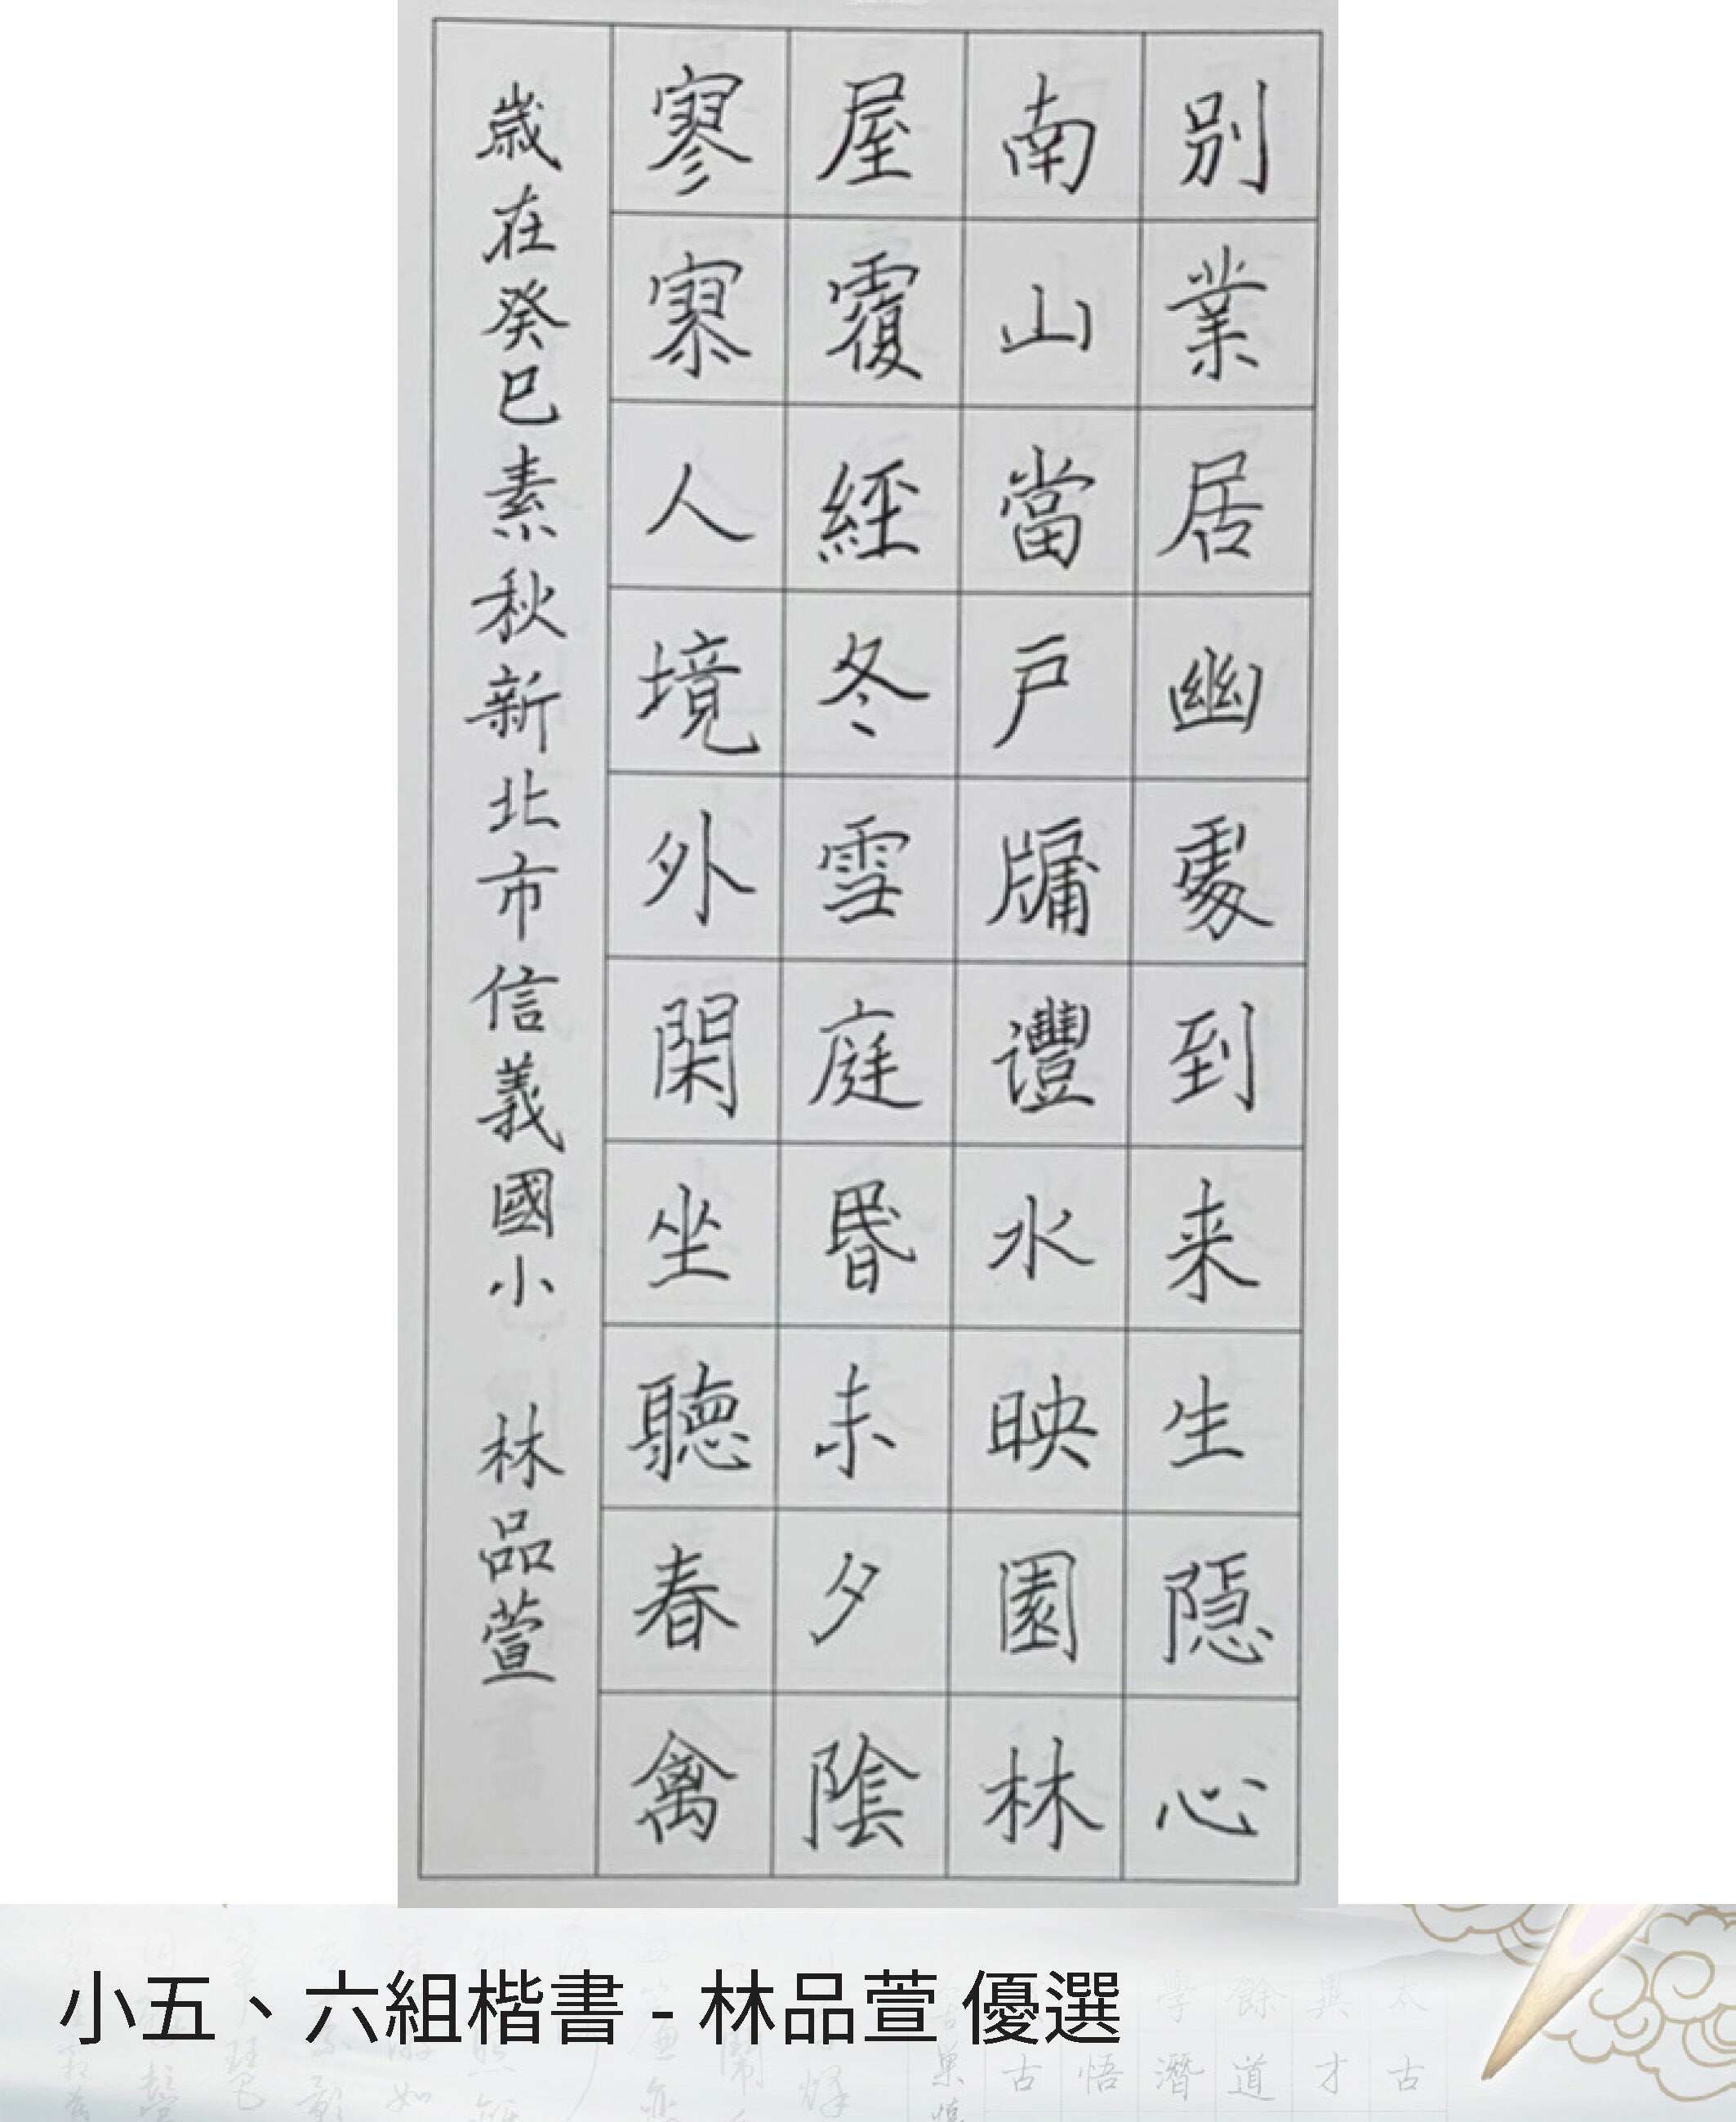 別業居幽處到来生隱心
南山當戶牖灃水映園林
屋覆經冬雪庭昬未夕陰
寥寥人境外閑坐聽春禽
歲在癸巳素秋新北市信義國小 林品萱
小五、六組楷書 - 林品萱 優選